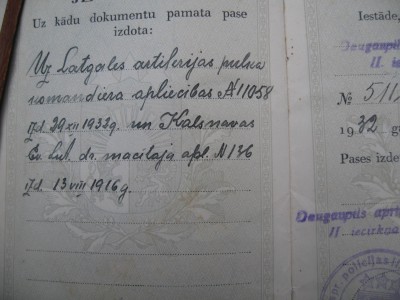 Uz kādu dokumentu pamata pase
izdota:
Uz Latgales artilerijas pulka
komandiera apliecības A11058
izd. 29 XII 1932g. un Kalsnavas
Ev. Lut. dr. mācītāja apl. N 136
izd. 13 VIII 1916 g.
Iestāde,
Daugavpils
II. iecirk
№ 511
1932 g
Pases izde
Daugavpils apri
II iecirkņa